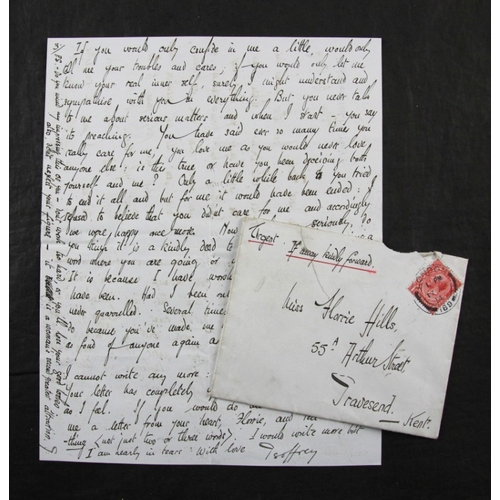 If you would only confide in me a little, would only
tell me your troubles and cares; if you would only let me
know your real inner self, surely I might understand and
sympathise with you in everything. But you never talk
to me about serious matters and when I start - you say
it's preaching. You have said ever so many time you
really care for me, you love me as you would never love
anyone else; is this true or have you been deceiving both
yourself and me? Only a little while back you tried
to end it all and but for me it would have been ended: I
refused to believe that you didn't care for me and accordingly
we were happy once more. Now seriously, do
you think it is a kindly deed to
word where you are going or
It is because I have
have been. Had I been
never quarrelled. Several times
do because you've made me
as fond of anyone again
I cannot write any more:
your letter has completely
as I feel. If you would do
me a letter from your heart, Florrie, and
-thing (not just two or three words). I would write more but
I am nearly in tears. With love Geoffrey
Urgent. If away kindly forward.
Miss Florrie Hills,
55A Arthur Street
Gravesend.
Kent.